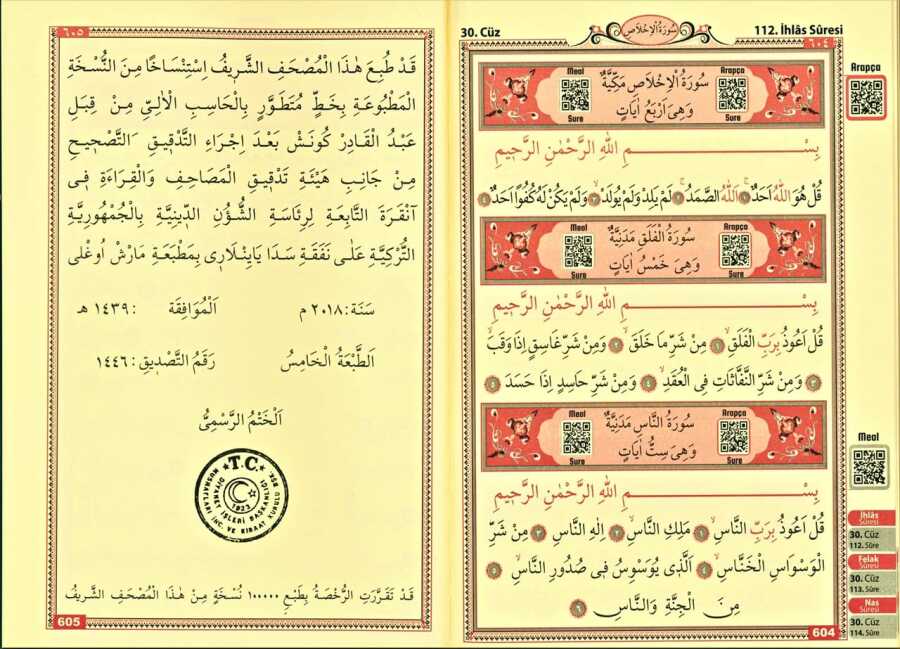 30. Cüz
سُورَةُ الْاِخْلَاصِ
112. İhlâs Sûresi
٦٠٤
Meal
Sure
سُورَةُ الْاِخْلَاصِ مَكِّيَّةٌ
وَهِىَ اَرْبَعُ اٰيَاتٍ
Arapça
Sure
بِسْــمِ اللهِ الرَّحْمٰنِ الرَّح۪يمِ
قُلْ هُوَ اللهُ اَحَدٌۚ ﴿١﴾ اَللهُ الصَّمَدُۚ ﴿٢﴾ لَمْ يَلِدْ وَلَمْ يُولَدْۙ ﴿٣﴾ وَلَمْ يَكُنْ لَهُ كُفُوًا اَحَدٌ ﴿٤﴾
Meal
Sure
سُورَةُ الْفَلَقِ مَدَنِيَّةٌ
وَهِىَ خَمْسُ اٰيَاتٍ
Arapça
Sure
بِسْــمِ اللهِ الرَّحْمٰنِ الرَّح۪يمِ
قُلْ اَعُوذُ بِرَبِّ الْفَلَقِۙ ﴿١﴾ مِنْ شَرِّ مَا خَلَقَۙ ﴿٢﴾ وَمِنْ شَرِّ غَاسِقٍ اِذَا وَقَبَۙ
﴿٣﴾ وَمِنْ شَرِّ النَّفَّاثَاتِ فِى الْعُقَدِۙ ﴿٤﴾ وَمِنْ شَرِّ حَاسِدٍ اِذَا حَسَدَ ﴿٥﴾
Meal
Sure
سُورَةُ النَّاسِ مَدَنِيَّةٌ
وَهِىَ سِتُّ اٰيَاتٍ
Arapça
Sure
بِسْــمِ اللهِ الرَّحْمٰنِ الرَّح۪يمِ
قُلْ اَعُوذُ بِرَبِّ النَّاسِۙ ﴿١﴾ مَلِكِ النَّاسِۙ ﴿٢﴾ اِلٰهِ النَّاسِۙ ﴿٣﴾ مِنْ شَرِّ
الْوَسْوَاسِ الْخَنَّاسِۙ ﴿٤﴾ اَلَّذ۪ى يُوَسْوِسُ ف۪ى صُدُورِ النَّاسِۙ ﴿٥﴾
مِنَ الْجِنَّةِ وَالنَّاسِ ﴿٦﴾
604
Arapça
Meal
İhlâs
Sûresi
30. Cüz
112. Sûre
Felak
Sûresi
30. Cüz
113. Sûre
Nas
Sûresi
30. Cüz
114. Sûre
٦٠٥
قَدْ طُبِعَ هٰذَا الْمُصْحَفِ الشَّرِيفُ اِسْتِنْسَاخًا مِنَ النُّسْخَةِ
الْمَطْبُوعَةِ بِخَطٍّ مُتَطَوَّرٍ بِالْحَاسِبِ الْاٰلِىِّ مِنْ قِبَلِ
عَبْدُ الْقَادِرْ كُونَشْ بَعْدَ اِجْرَاءِ التَّدْق۪يقِ ـ التَّصْح۪يحِ
مِنْ جَانِبِ هَيْئَةِ تَدْق۪يقِ الْمَصَاحِفِ وَالْقِرَاءَةِ ف۪ى
اَنْقَرَةَ التَّابِعَةِ لِرِئَاسَةِ الشُّؤُنِ الدّ۪ينِيَّةِ بِالْجُمْهُورِيَّةِ
التُّرْكِيَّةِ عَلٰى نَفَقَةِ سَدَا يَاي۪نْلَار۪ى بِمَطْبَعَةِ مَارْشْ اُوغْلى
سَنَة: ٢٠١٨ م اَلْمُوَافِقَة : ١٤٣٩ هـ
اَلطَّبْعَةُ الْخَامِسُ رَقَمُ التَّصْد۪يقِ: ١٤٤٦
اَلْخَتْمُ الرَّسْمِىُّ
T.C.
DİYANET İŞLERİ BAŞKANLIĞI
MUSHAFLARI İNC. VE KIRAAT KURULU BŞK.
1923
قَدْ تَقَرَّرَتِ الرُّخْصَةُ بِطَبْعِ ١٠٠٠٠٠ نُسْخَةٍ مِنْ هٰذَا الْمُصْحَفِ الشَّرِيفُ
605